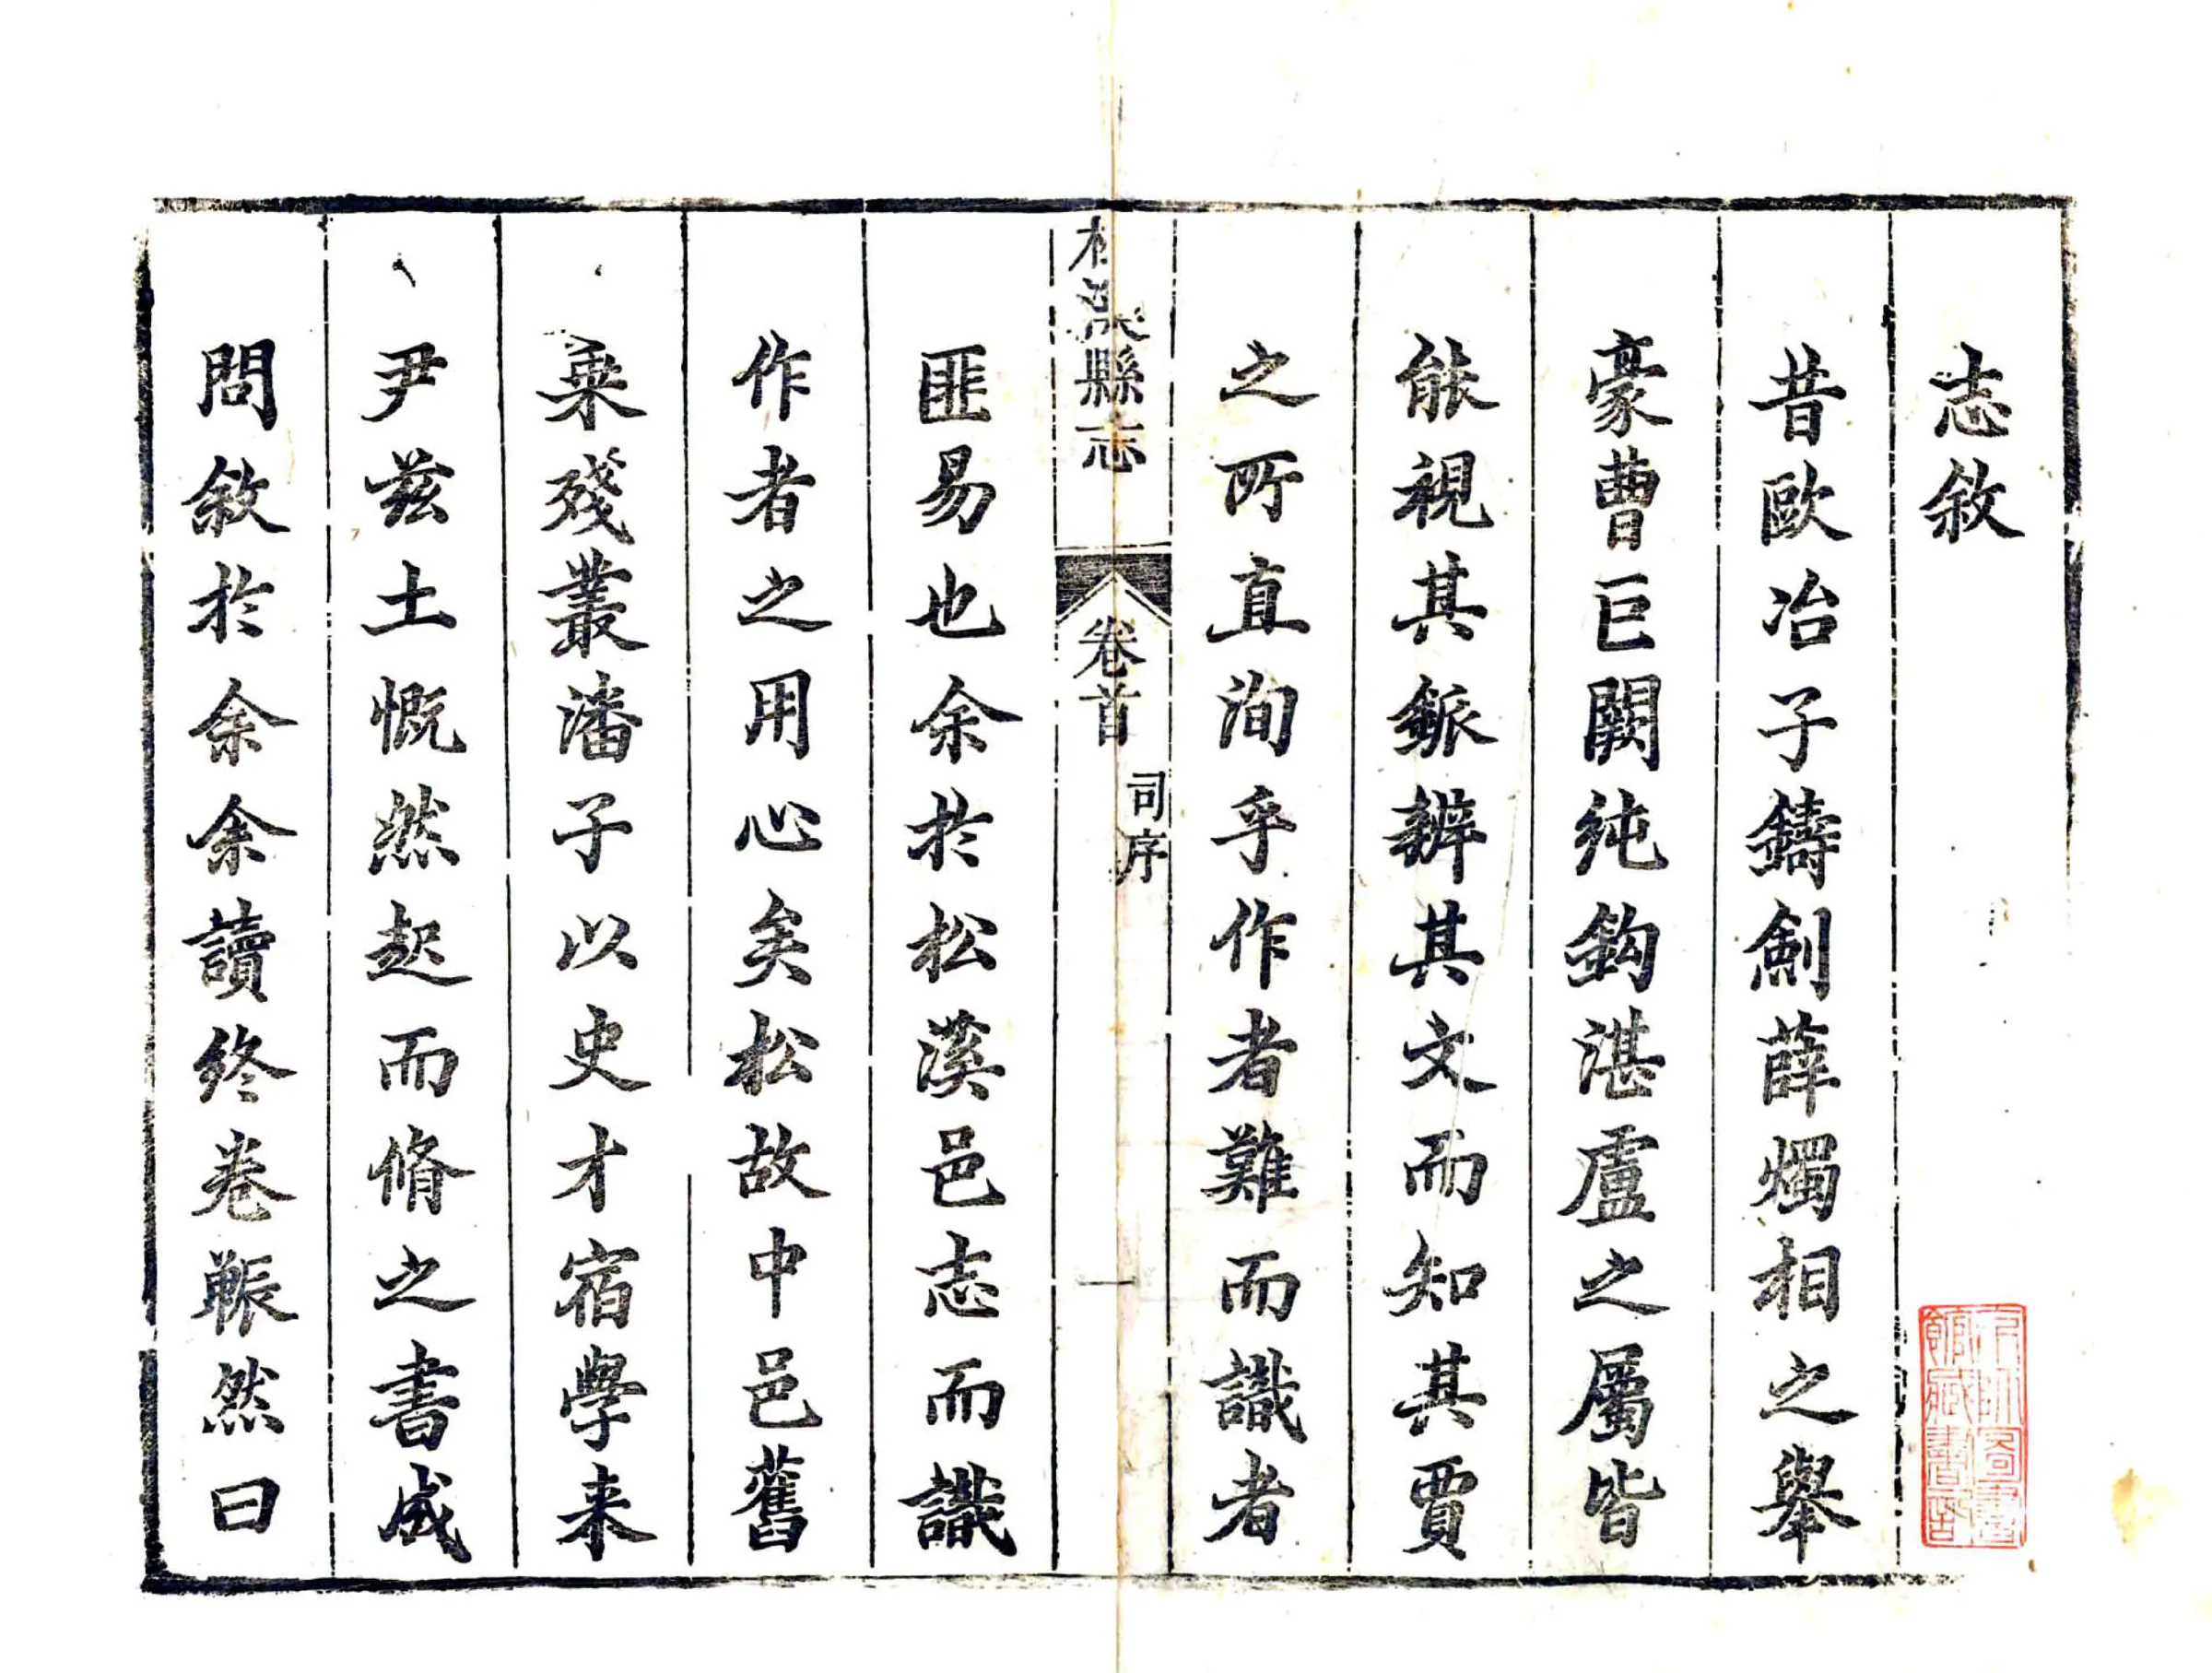 志敘
昔歐冶子鑄劍薛燭相之舉
豪曹巨闕純鈎湛盧之屬皆
能視其鋠辨其文而知其賈
之所直洵乎作者難而識者
松溪縣志 卷首 司序 一
匪易也余於松溪邑志而識
作者之用心矣松故中邑舊
乗殘叢潘子以史才宿學来
尹茲土慨然起而脩之書成
問敘於余余讀終卷冁然曰